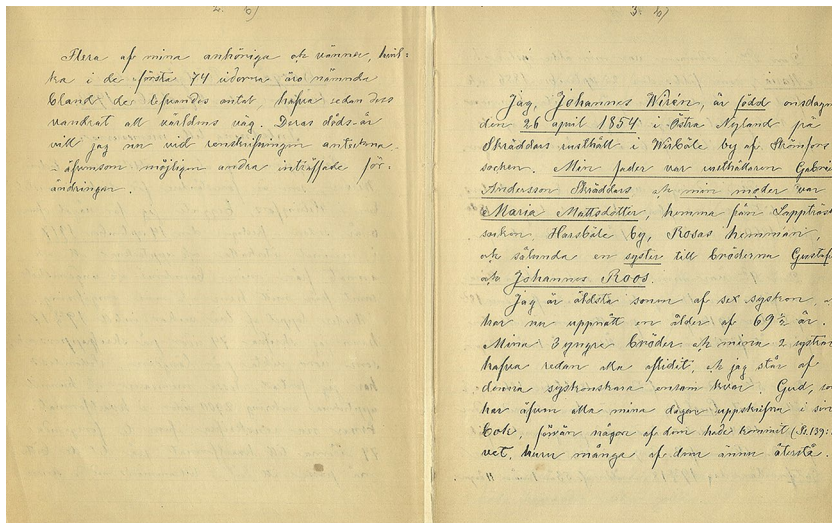 2. b)
Flera af mina anhöriga och vänner, hvil-
ka i de första 74 sidorna äro nämnda
bland de lefvandes antal, hafva sedan dess
vandrat all världens väg. Deras döds-år
vill jag nu vid renskrifningen anteckna
äfvensom möjligen andra inträffade för-
ändringar.
3. b)
Jag, Johannes Wirén, är född onsdagen
den 26 april 1854 i Östra Nyland på
Skräddars rusthåll i Wirböle by af Strömfors
socken. Min fader var rusthållaren Gabriel
Andersson Skräddars och min moder var
Maria Mattsdotter, hemma från Lappträsk
socken, Harsböle by, Rosas hemman,
och sålunda en syster till bröderna Gustaf
och Johannes Roos.
Jag är äldsta sonen af sex syskon,
har nu uppnått en ålder af 69½ år.
Mina 3 yngre bröder och mina 2 systrar
hafva redan alla aflidit, och jag står af
denna syskonskara ensam kvar. Gud, som
har äfven alla mina dagar uppskrifna i sin
bok, förrän någon af dem hade kommit (Ps. 139:
vet, huru många af dem ännu återstå.